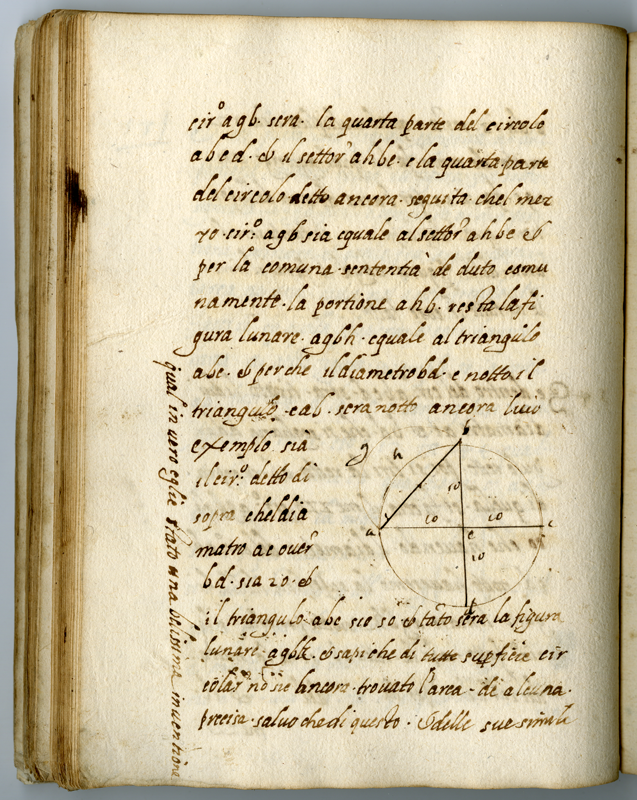 cirº agb. sera. la quarta parte del circolo
abcd. & il settor' ahbe. e la quarta parte
del circolo detto ancora. seguita chel mez
zo. cir.º agb sia equale al settor' ahbe &
per la comuna. sententia de duto comu
namente. la portione ahb. resta la fi
gura lunare. agbh. equale al triangulo
abe. & perche il diametro bd. e notto il
triangulo eab. sera notto ancora
exemplo sia
il cir.º detto di
sopra chel dia
matro ac over'
bd. sia 20. &
il triangulo abe sio 50 & tato sera la figura
lunare agbh. & sapi che di tutte superficie cir
colar' nō sie ancora. trovato l'area. de alcuna.
precisa. salvo che di questo. & delle sue simile
qual in vero eglie stato una belissima inventione
g
h
b
a
c
e
10
10
10
10